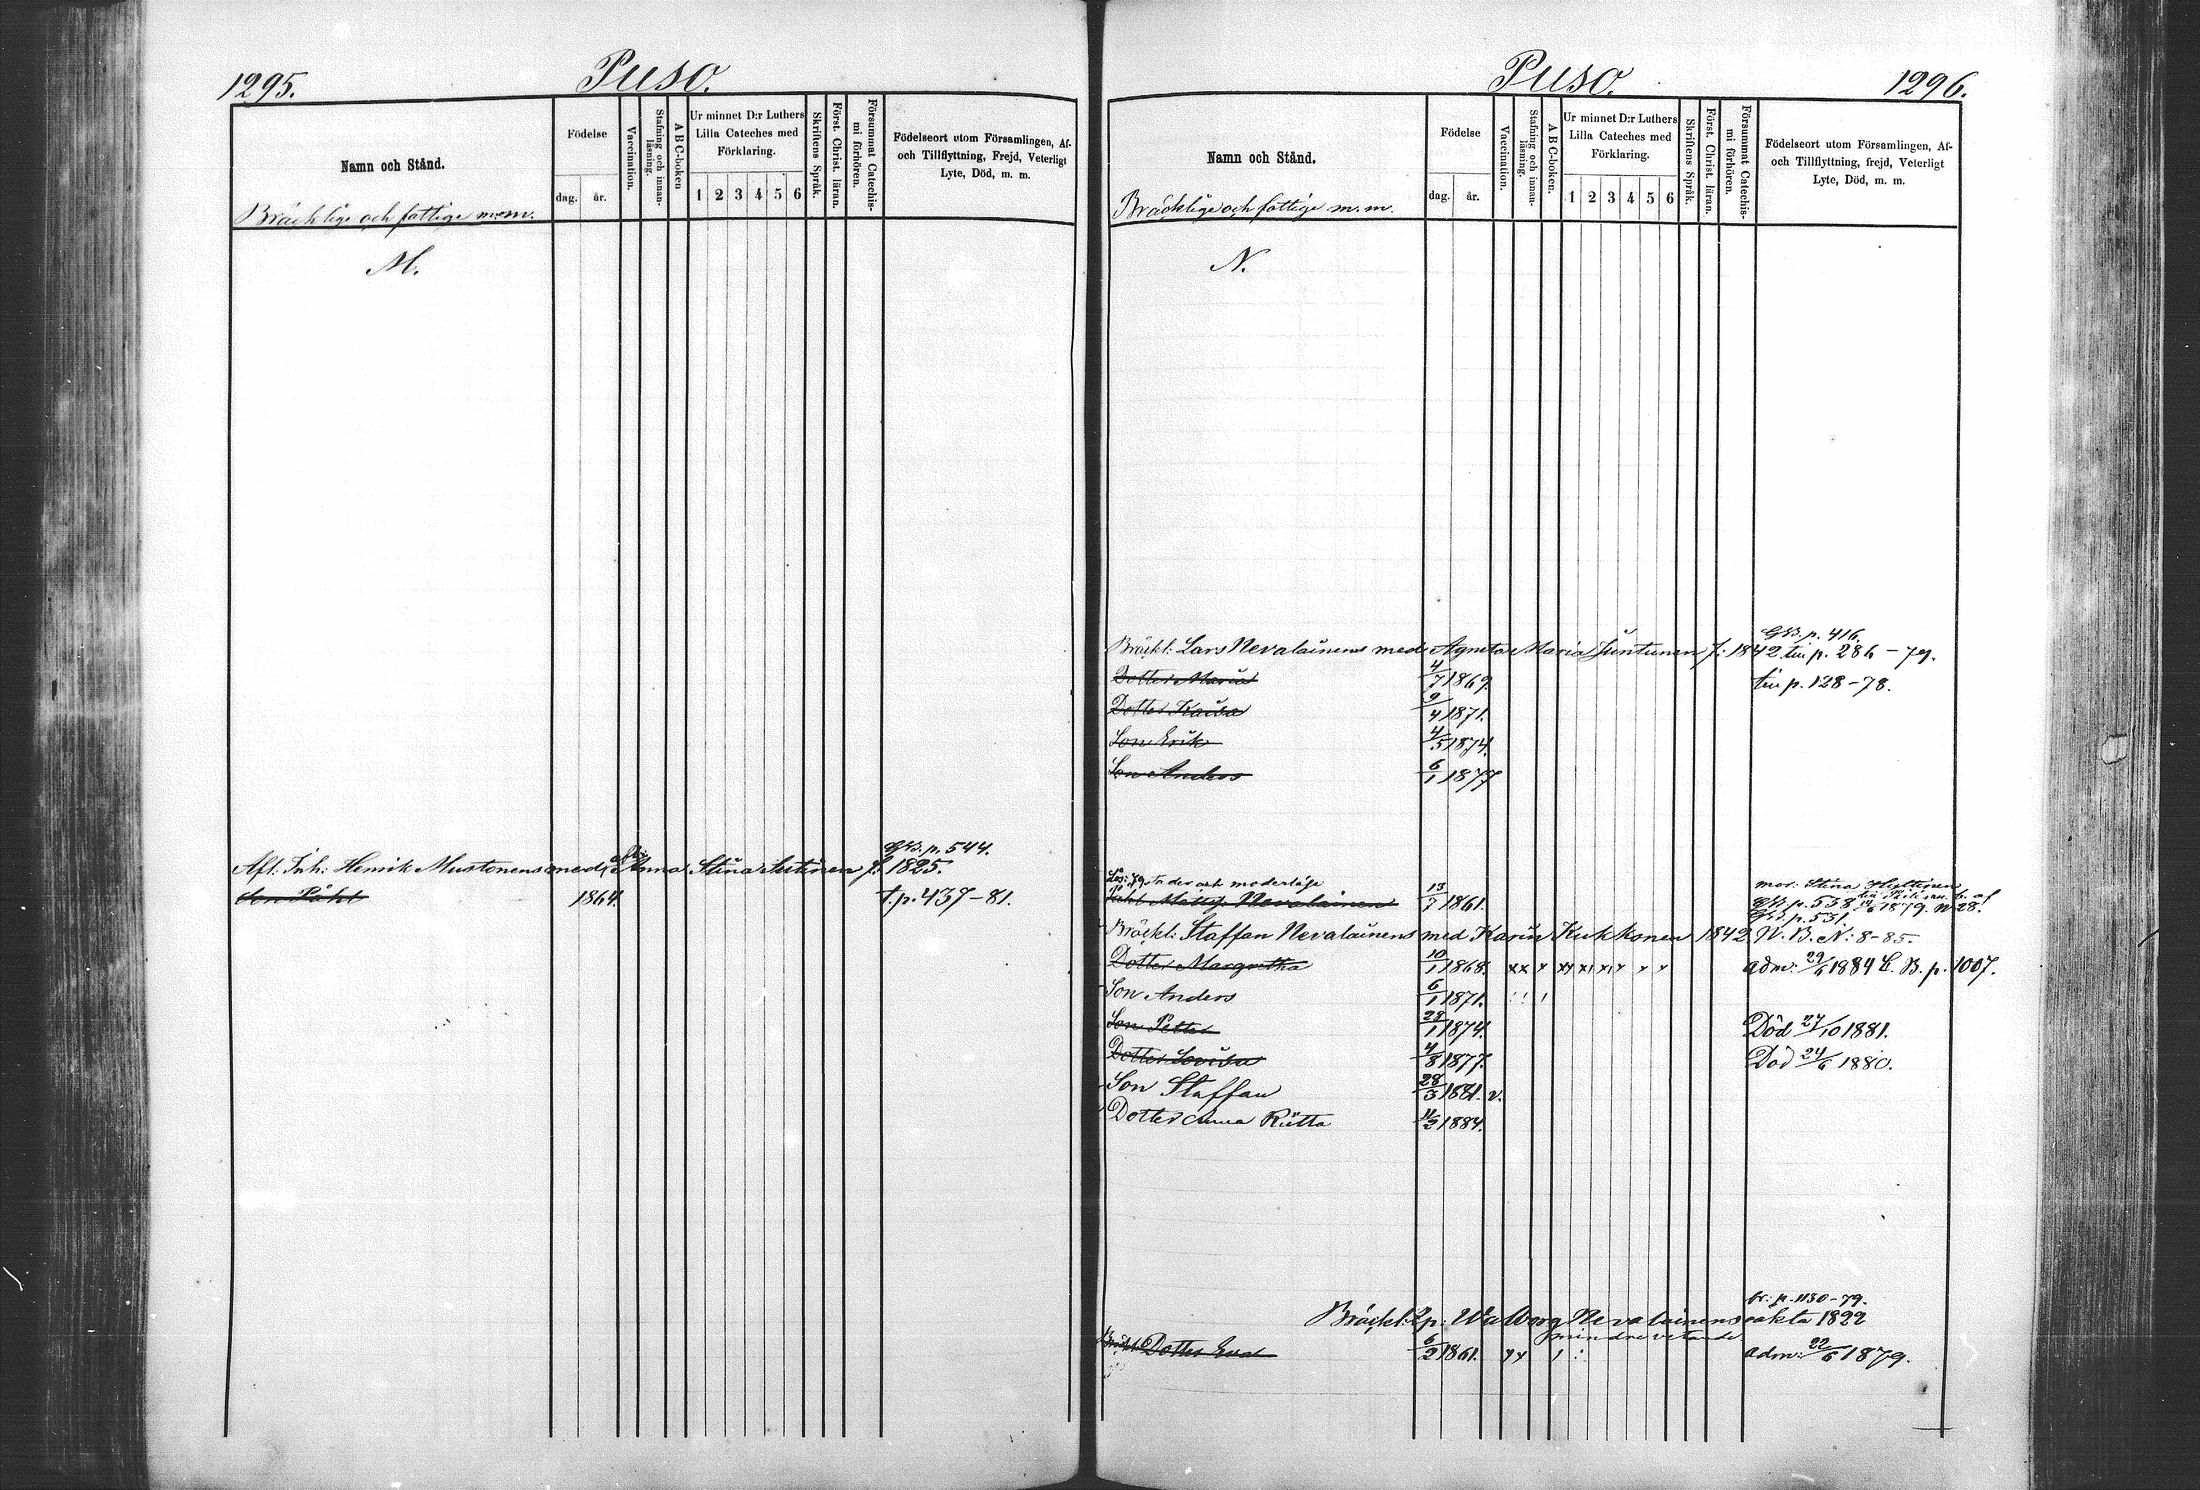 1295.
Puso.
Namn och Stånd.
Födelse
dag.
år.
Vaccination.
Stafning och innanläsning.
A B C-boken
Ur minnet D:r Luthers
Lilla Cateches med
Förklaring.
1 2 3 4 5 6
Skriftens Språk.
Först. Christ. läran.
Försummat Catechismi förhören.
Födelseort utom Församlingen, Af-
och Tillflyttning, Frejd, Veterligt
Lyte, Död, m. m.
Bräcklige och fattige m. m.
M.
GB. p. 544.
Aft. Inh: Henrik Mustonens med Anna Stina f. 1825.
Son Påhl 1864. t. p. 437-81.
Puso.
1296.
Namn och Stånd.
Födelse
dag.
år.
Vaccination.
Stafning och innanläsning.
A B C-boken.
Ur minnet D:r Luthers
Lilla Cateches med
Förklaring.
1 2 3 4 5 6
Skriftens Språk.
Först. Christ. läran.
Försummat Catechismi förhören.
Födelseort utom Församlingen, Af-
och Tillflyttning, frejd, Veterligt
Lyte, Död, m. m.
Bräcklige och fattige m. m.
N.
GB. p. 416.
Bräckl: Lars Nevalainens med Agneta Maria Juntunen f: 1842. till p. 286-79.
Dotter Maria 4/7 1869. till p. 128-78.
Dotter Kaisa 9/4 1871.
Son Erik 4/5 1874.
Son Anders 6/1 1877
fader och moderlöse mor: Stina
Påhl Mattsson Nevalainen 13/7 1861. GB. p. 538 1879. N 28.
GB. p. 531.
Bräckl: Staffan Nevalainens med Karin Kukkonen 1842. N. B. N: 8-85.
Dotter Margretha 10/1 1868. adm: 29/6 1884 C. B. p. 1007.
Son Anders 6/1 1871.
Son Petter 28/1 1874. Död 27/10 1881.
Dotter Lovisa 4/8 1877. Död 24/6 1880.
Son Staffan 28/3 1881. v.
Dotter Anna Riitta 11/2 1884.
fr: p. 1130-79.
Bräckl: Lp: Walborg Nevalainens enka 1822
mindre vetande
Dotter Eva 6/2 1861. adm: 22/6 1879.